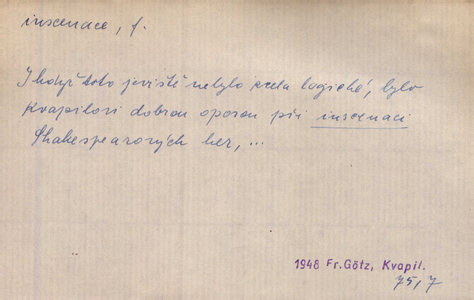 inscenace, f.
I když toto jeviště nebylo zcela logické, bylo
Kvapilovi dobrou oporou při inscenaci
Shakespearových her, ...
1948 Fr. Götz, Kvapil.
75,7